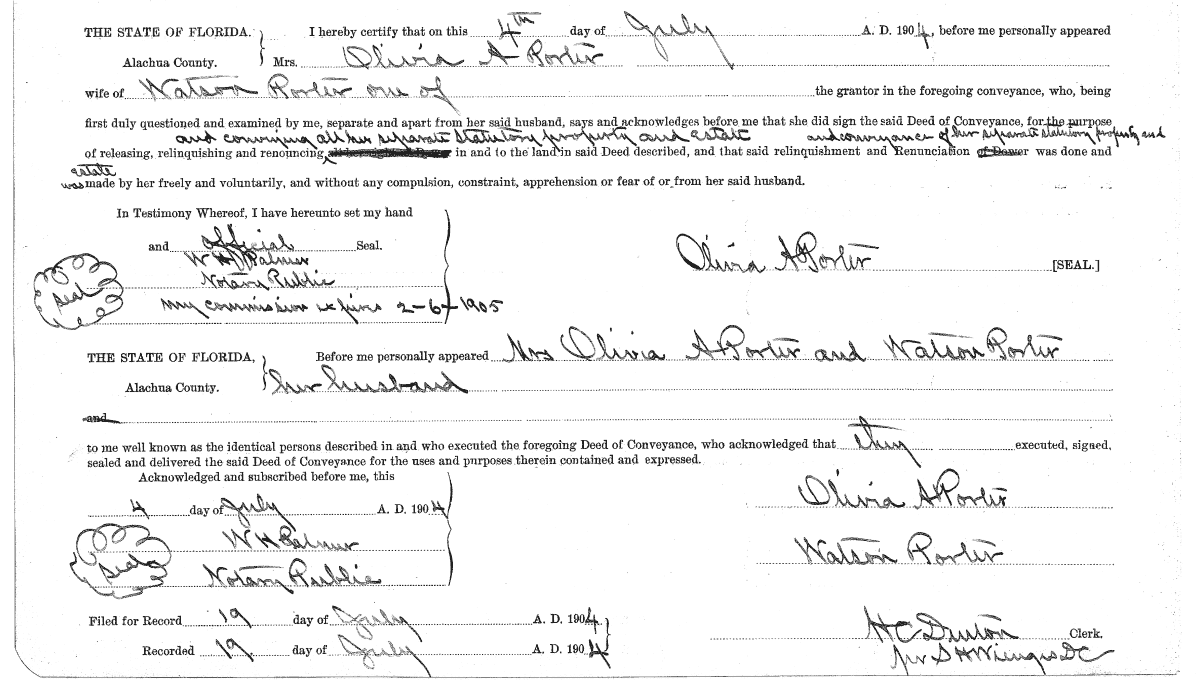 THE STATE OF FLORIDA. I hereby certify that on this 4th day of July A. D. 1904, before me personally appeared
Alachua County. Mrs. Olivia A Porter
wife of Watson Porter one of the grantor in the foregoing conveyance, who, being
first duly questioned and examined by me, separate and apart from her said husband, says and acknowledges before me that she did sign the said Deed of Conveyance, for the purpose
and conveying all her separate statutory property and estate and conveyance of her separate statutory property and
of releasing, relinquishing and renouncing, in and to the land in said Deed described, and that said relinquishment and Renunciation of Dower was done and
estate
was made by her freely and voluntarily, and without any compulsion, constraint, apprehension or fear of or from her said husband.
In Testimony Whereof, I have hereunto set my hand
and official Seal.
W H Palmer
Olivia A Porter [SEAL.]
Notary Public
seal
My commission expires 2-6-1905
THE STATE OF FLORIDA, Before me personally appeared Mrs Olivia A Porter and Watson Porter
Alachua County. her husband
and
to me well known as the identical persons described in and who executed the foregoing Deed of Conveyance, who acknowledged that they executed, signed,
sealed and delivered the said Deed of Conveyance for the uses and purposes therein contained and expressed.
Acknowledged and subscribed before me, this
Olivia A Porter
4 day of July A. D. 1904
W H Palmer
Watson Porter
seal
Notary Public
Filed for Record 19 day of July A. D. 1904
H C Denton Clerk.
Recorded 19 day of July A. D. 1904
per S H Wienges DC